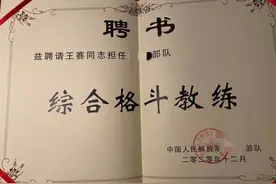 聘书
兹聘请王赛同志担任 部队
综合格斗教练
中国人民解放军 部队
二零二零年十二月